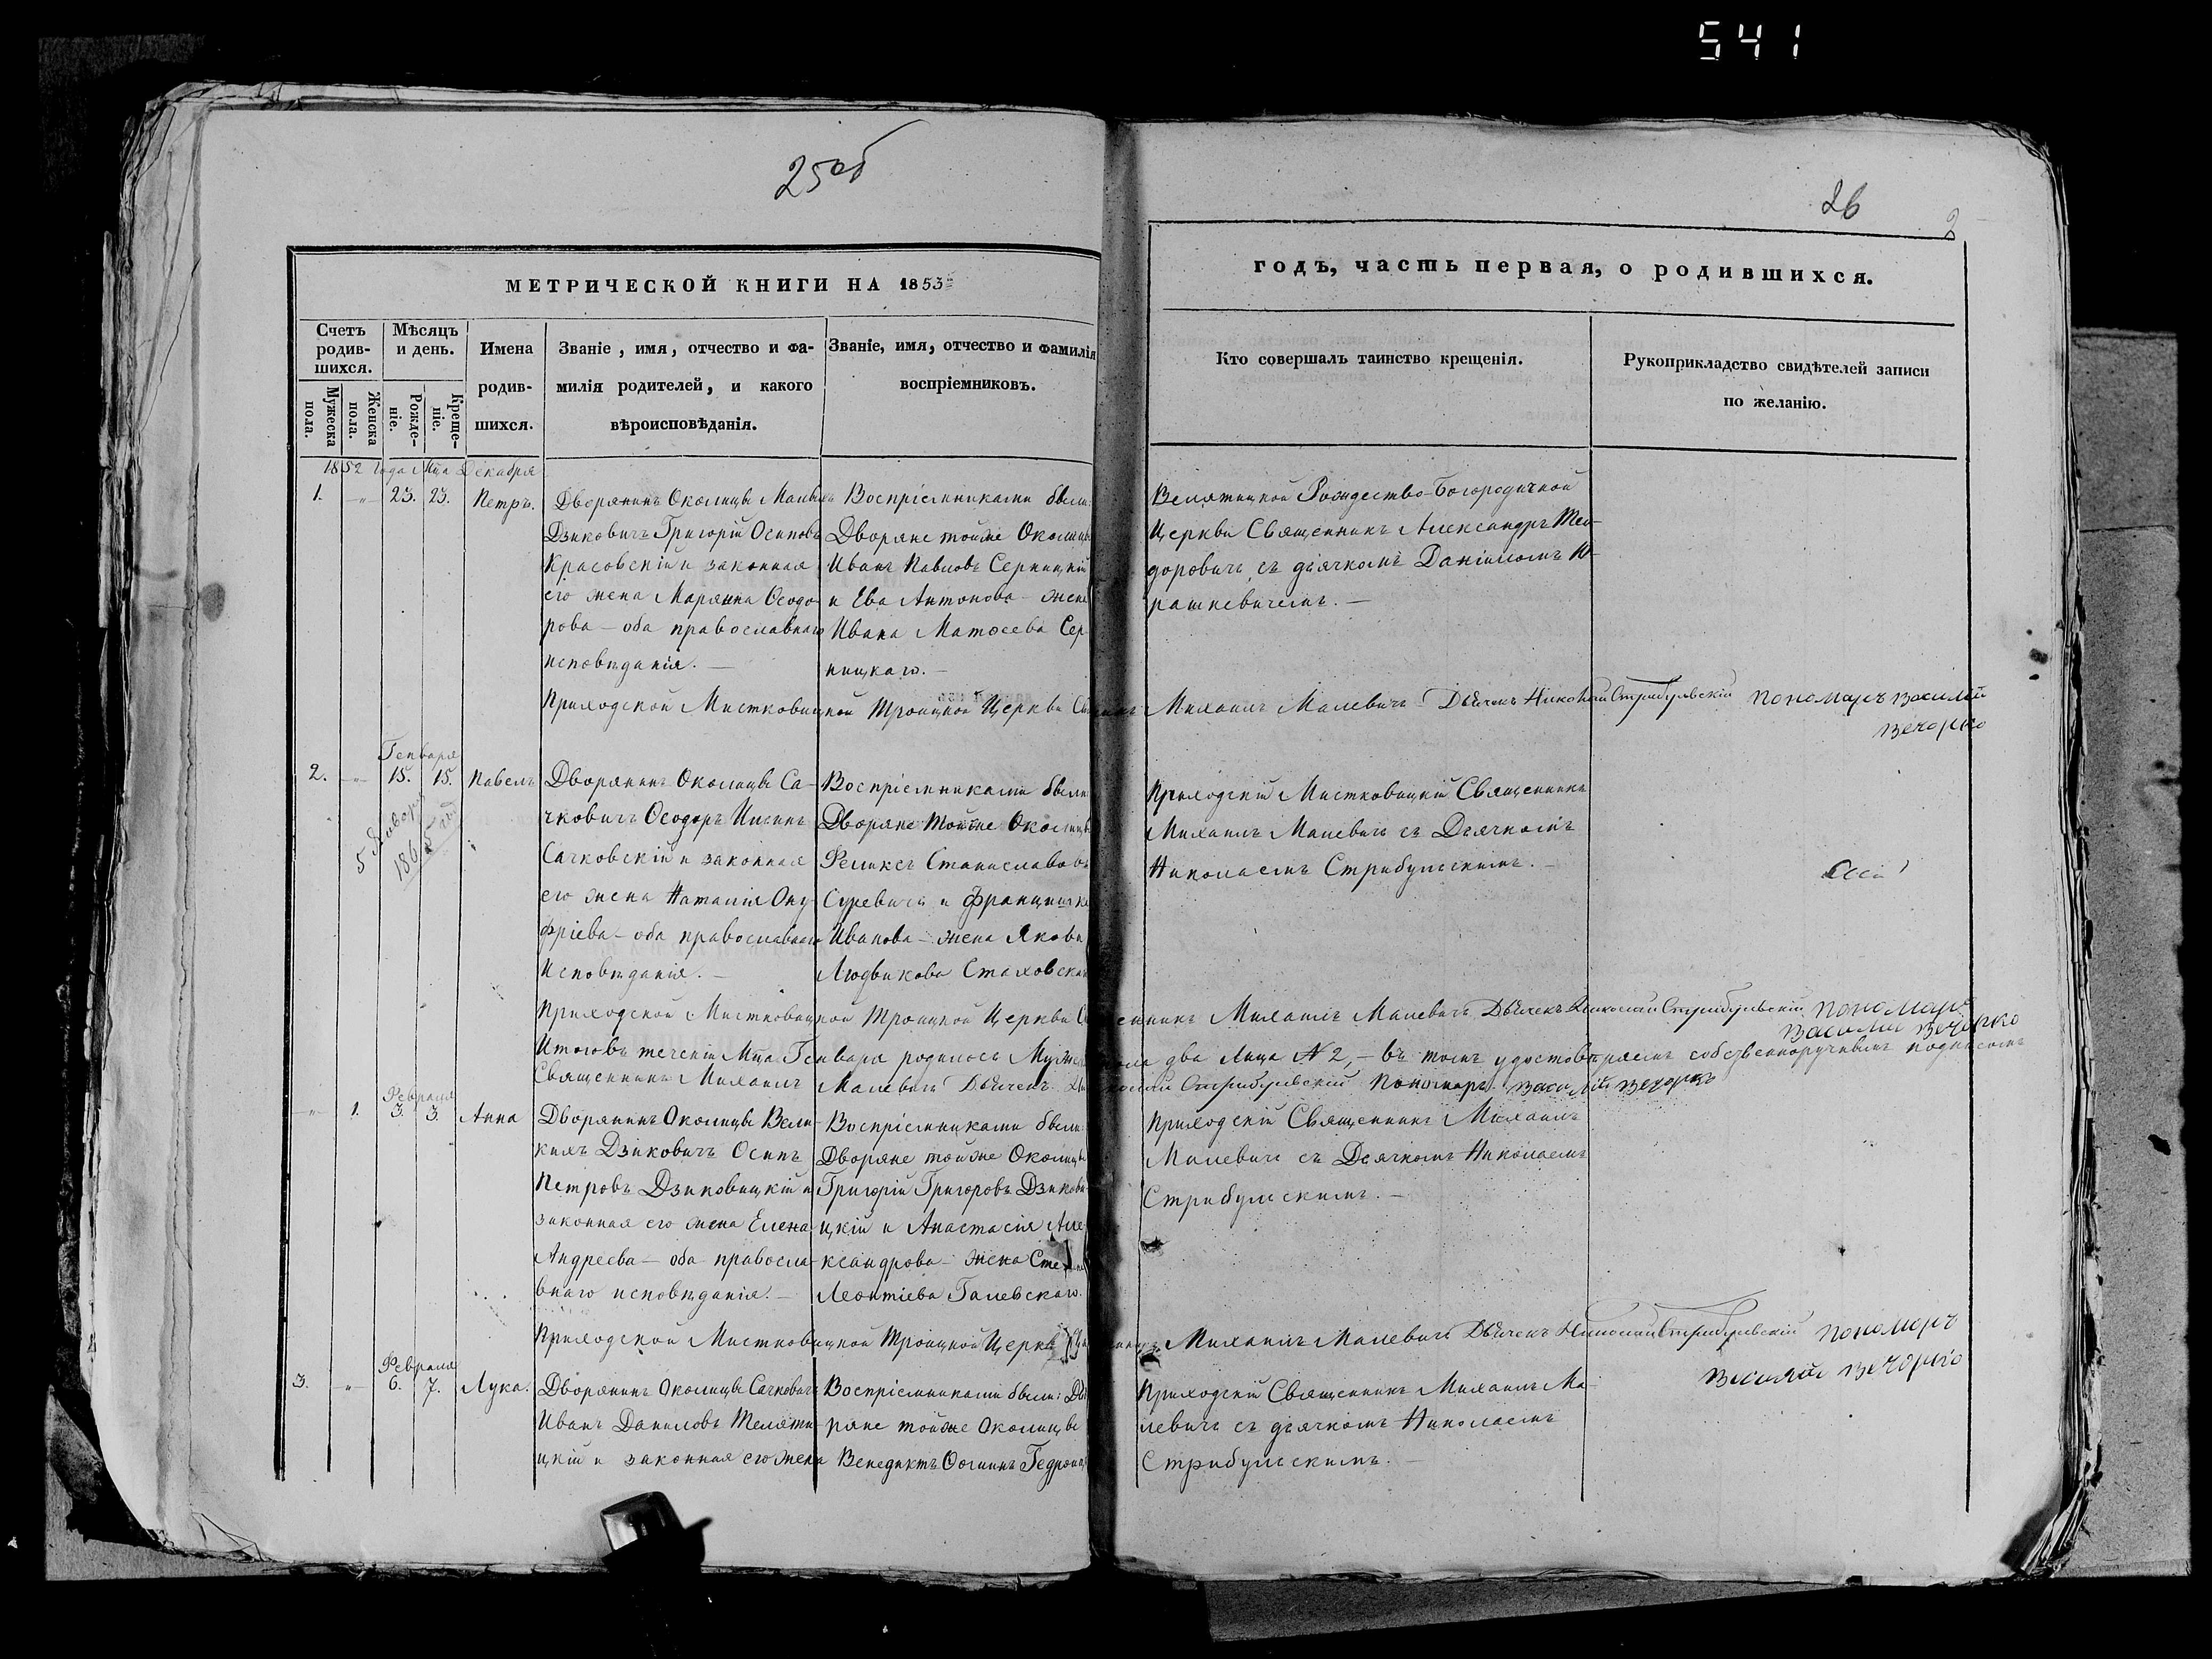 541
25об
26
2
МЕТРИЧЕСКОЙ КНИГИ НА 1853
годъ, часть первая, о родившихся.
Счетъ родив-шихся.
Мужеска пола.
Женска пола.
Мѣсяцъ и день.
Рожде-ніе.
Креще-ніе.
Имена
родив-
шихся.
Званіе, имя, отчество и фа-
милія родителей, и какого
вѣроисповѣданія.
Званіе, имя, отчество и фамилія
воспріемниковъ.
Кто совершалъ таинство крещенія.
Рукоприкладство свидѣтелей записи
по желанію.
1852 года Мца Декабря
1. -„- 23. 23. Петръ.
Дворянинъ Околицы
Дзиковичъ Григорій Осиповъ
Красовскій и законная
его жена Марянна Ѳеодо-
рова - оба православнаго
исповѣданія. —
Воспріемниками были:
Дворяне тойже Околицы
Иванъ Павловъ Серницкій
и Ева Антонова - жена
Ивана Матѳеева Сер-
ницкаго. -
Велятицкой Рождество-Богородичной
Церкви Священникъ Александръ Тео-
доровичъ съ дьячкомъ Даніиломъ Ю-
рашкевичемъ. —
Приходской Мистковицкой Троицкой Церкви Михаилъ Малевичъ Дьячекъ Николай Стрибульскій Пономаръ Василій
Вечорко
Генваря
2. -„- 15. 15. Павелъ
5 Январ
1865
Дворянинъ Околицы Са-
чковичъ Ѳеодоръ
Сачковскій и законная
его жена Наталія Ону-
фріева - оба православнаго
Исповѣданія. —
Воспріемниками были
Дворяне тойже Околицы
Феликсъ Станиславовъ
Суревичъ и Францишка
Иванова - жена Якова
Людвикова
Приходскій Мистковицкій Священникъ
Михаилъ Малевичъ съ Дьячкомъ
Николаемъ Стрибульскимъ. —
Приходской Мистковицкой Троицкой Церкви Михаилъ Малевичъ Дьячекъ Николай Стрибульскій Пономаръ
Василій Вечорко
Итогоъ теченіи Мца Генваря родилось два лица № 2, - въ томъ удостовѣряемъ собственноручнымъ подписомъ
Священникъ Михаилъ Малевичъ Дьячекъ Стрибульскій Пономаръ Василій Вечорко
Февраля
-„- 1. 3. 3. Анна
Дворянинъ Околицы Вели-
кихъ Дзиковичъ Осипъ
Петровъ Дзиковицкій и
законная его жена Елена
Андреева - оба правосла-
внаго исповѣданія. —
Воспріемниками были
Дворяне тойже Околицы
Григорій Григоровъ Дзикови-
цкій и Анастасія Але-
ксандрова - жена
Леонтіева Галевскаго.
Приходскій Священникъ Михаилъ
Малевичъ съ Дьячкомъ Николаемъ
Стрибульскимъ. —
Приходской Мистковицкой Троицкой Михаилъ Малевичъ Дьячекъ Николай Стрибульскій Пономаръ
Василій Вечорко
Февраля
3. -„- 6. 7. Лука.
Дворянинъ Околицы Сачковичъ
Иванъ Даниловъ Телятиц-
цкій и законная его жена
Воспріемниками были: Дво-
ряне тойже Околицы
Венедиктъ
Приходскій Священникъ Михаилъ Ма-
левичъ съ дьячкомъ Николаемъ
Стрибульскимъ. —